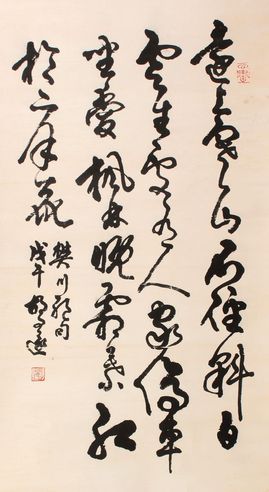 遠上寒山石徑斜白
雲生處有人家停車
坐愛楓林晚霜葉紅
於二月花
樊川句
戊午胡問遂